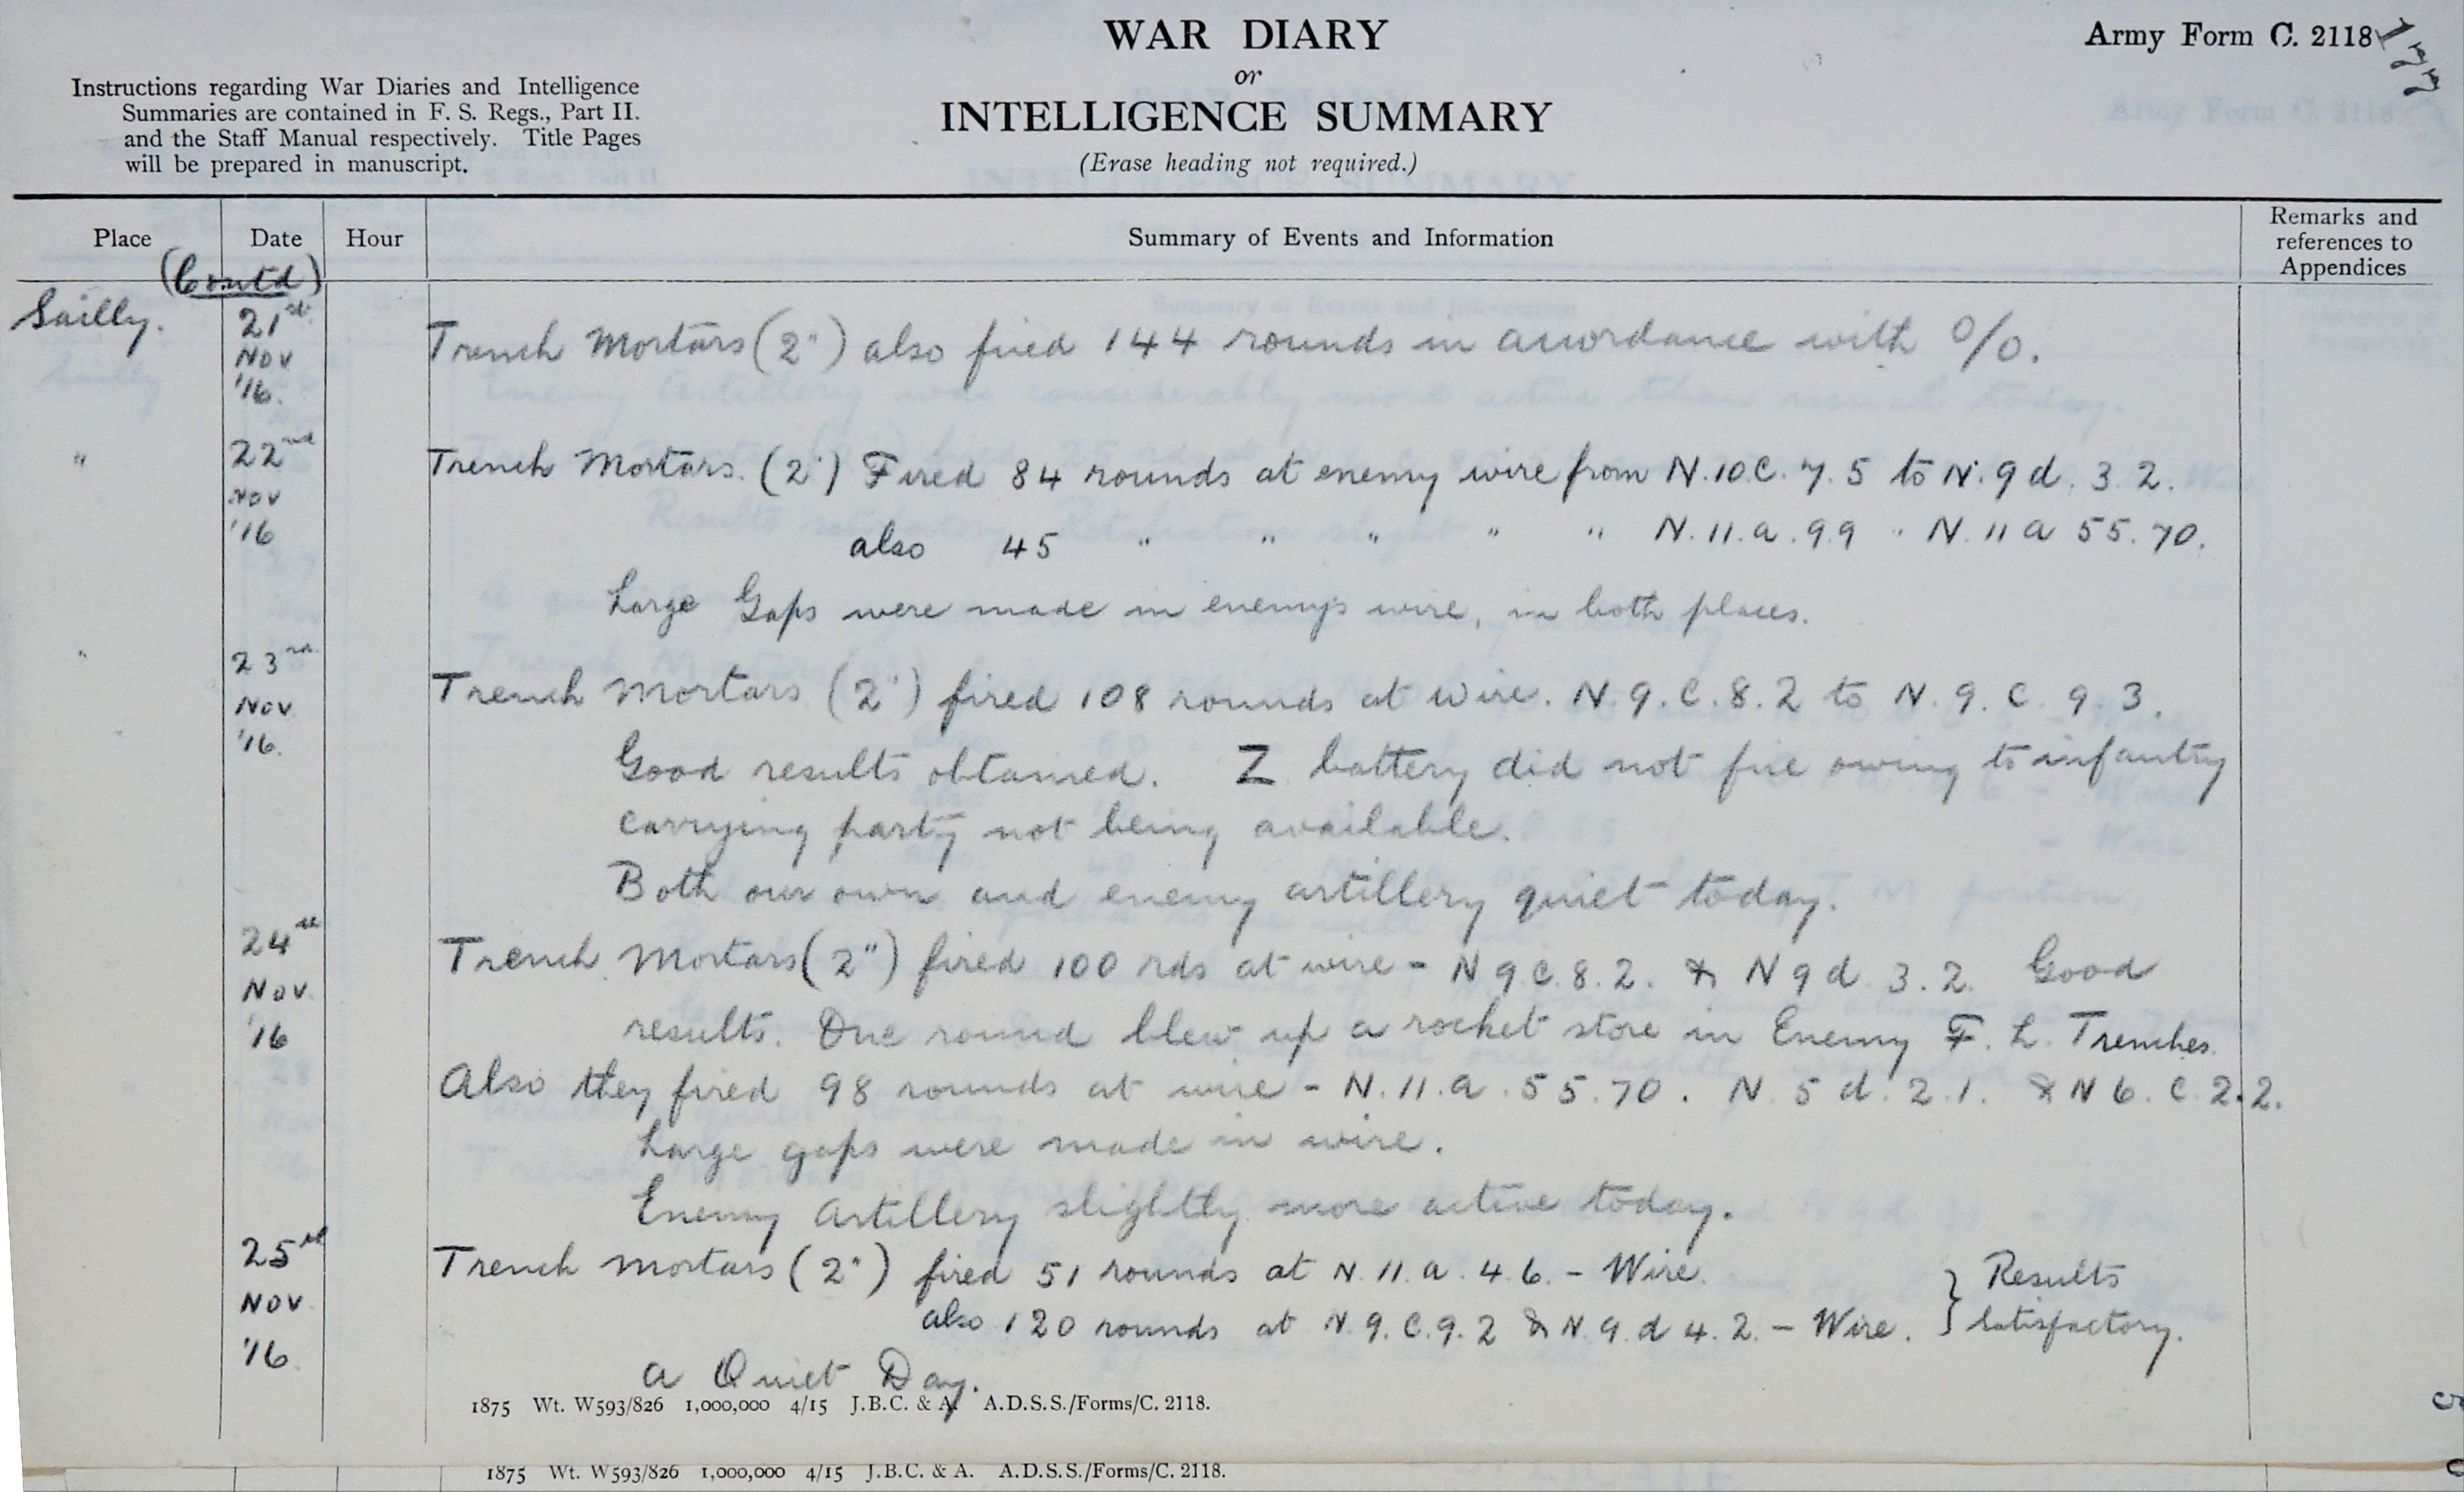 WAR DIARY
Army Form C. 2118
or
INTELLIGENCE SUMMARY
(Erase heading not required.)
Instructions regarding War Diaries and Intelligence
Summaries are contained in F. S. Regs., Part II.
and the Staff Manual respectively. Title Pages
will be prepared in manuscript.
Place Date Hour Summary of Events and Information Remarks and references to Appendices
(Contd)
Sailly. 21st Nov '16. Trench Mortars (2") also fired 144 rounds in accordance with O/O.
" 22nd Nov '16 Trench Mortars. (2") Fired 84 rounds at enemy wire from N.10.C.7.5 to N.9d.3.2.
also 45 " " " " " N.11.a.99 " N.11a 55.70.
Large Gaps were made in enemy's wire, in both places.
" 23rd Nov '16. Trench Mortars (2") fired 108 rounds at wire. N.9.C.8.2 to N.9.C.9.3.
Good results obtained. Z battery did not fire owing to infantry
carrying party not being available.
Both our own and enemy artillery quiet today.
24th Nov '16 Trench Mortars (2") fired 100 rds at wire - N9C.8.2. & N9d 3.2. Good
results. One round blew up a rocket store in Enemy F. L. Trenches.
Also they fired 98 rounds at wire - N.11.a.55.70. N.5d.2.1. & N6.C.2.2.
Large gaps were made in wire.
Enemy Artillery slightly more active today.
25th Nov '16 Trench Mortars (2") fired 51 rounds at N.11.a.4.6. - Wire. } Results
also 120 rounds at N.9.C.9.2 & N.9.d 4.2. - Wire. } Satisfactory.
A Quiet Day.
1875 Wt. W593/826 1,000,000 4/15 J.B.C. & A. A.D.S.S./Forms/C. 2118.
1875 Wt. W593/826 1,000,000 4/15 J.B.C. & A. A.D.S.S./Forms/C. 2118.